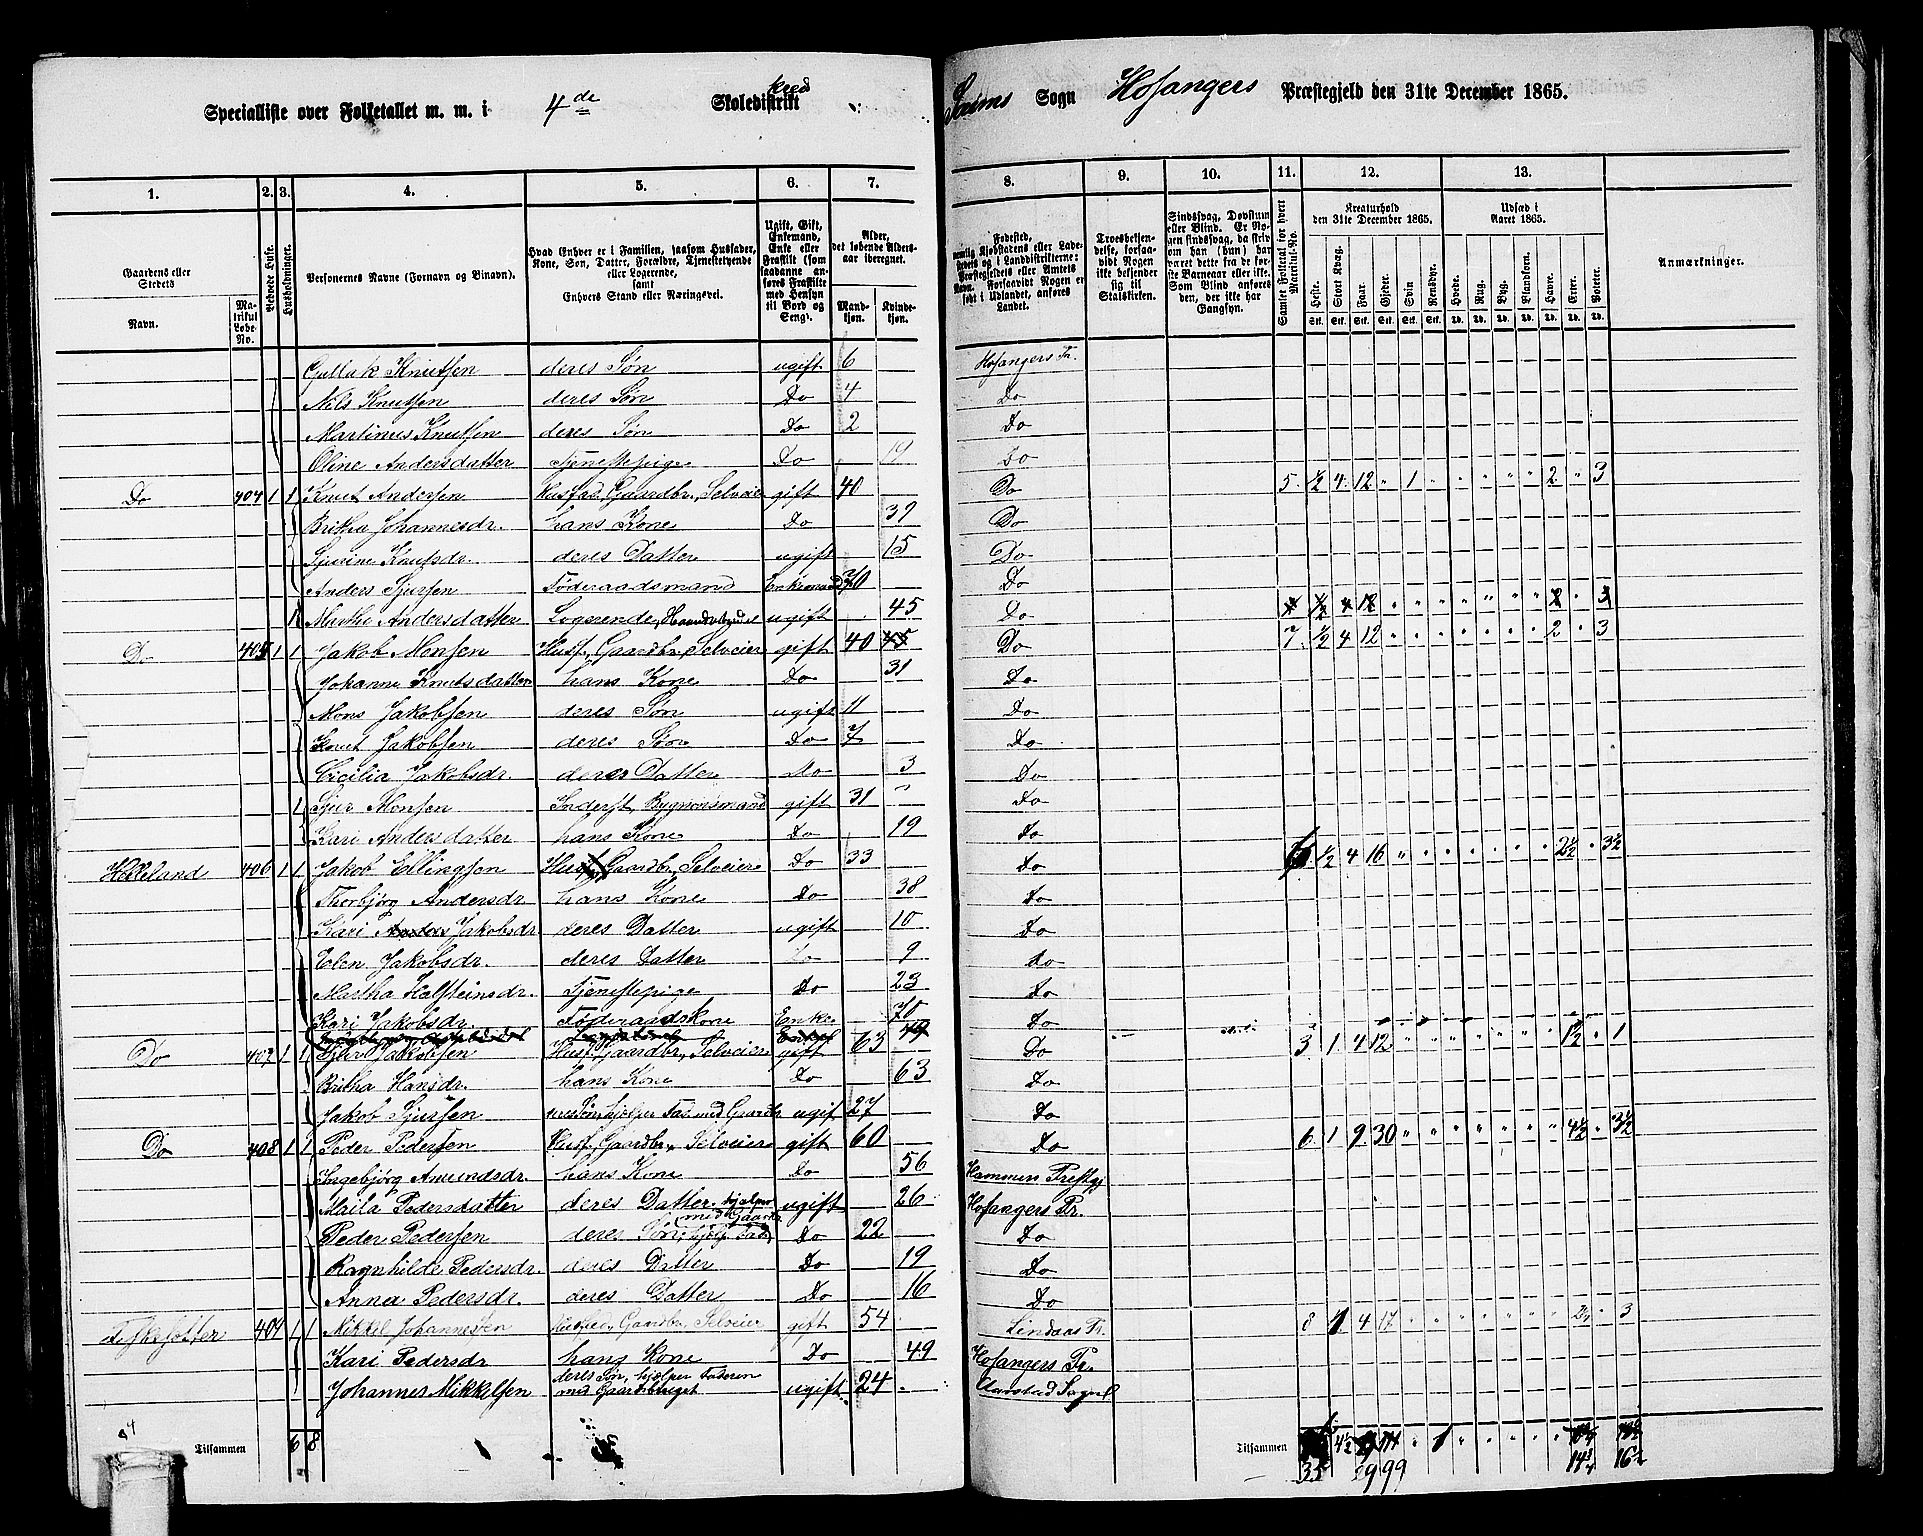 Specialliste over Folketallet m. m. i 4de Skoledistrikt kred Sæims Sogn Hosangers Præstegjeld den 31te December 1865.
1. 2. 3. 4. 5. 6. 7. 8. 9. 10. 11. 12. 13.
Gaardens eller Stedets Navn. Matrikul Løbe-No. Beboede Huse. Husholdninger. Personernes Navne (Fornavn og Binavn).
Hvad Enhver er i Familien, saasom Husfader, Kone, Søn, Datter, Forældre, Tjenestetyende eller Logerende, samt Enhvers Stand eller Næringsvei.
Ugift, Gift, Enkemand, Enke eller Fraskilt (som saadanne anføres Fraskilte med Hensyn til Bord og Seng).
Alder, det løbende Alders-aar iberegnet. Mandkjøn. Kvindekjøn.
Troesbekjendelse, forsaavidt Nogen ikke bekjender sig til Statskirken.
Samlet Folketal for hvert Matrikul-No.
Kreaturhold den 31te December 1865. Udsæd i Aaret 1865. Anmærkninger.
Heste. Stort Kvæg. Faar. Gjeder. Svin. Rensdyr. Hvede. Rug. Byg. Blandkorn. Havre. Erter. Poteter.
Gullak Knutsen deres Søn ugift 6 Hosangers Pr.
Nils Knutsen deres Søn Do 4 Do
Martinus Knutsen deres Søn Do 2 Do
Oline Andersdatter Tjenestepige Do 19 Do
Do 404 1 1 Knut Andersen Husfad. Gaardbr. Selveier gift 40 Do 5 ½ 4 12 " 1 " " " " " 2 " 3
Britha Johannesdr. hans Kone Do 39 Do
Sjurine Knutsdr. deres Datter ugift 15 Do
Anders Sjursen Føderaadsmand Enkemand 70 Do
1 Marthe Andersdatter Logerende, ugift 45 Do
Do 405 1 1 Jakob Monsen Husf. Gaardbr. Selveier gift 40 45 Do 7 ½ 4 12 " " " " " " " 2 " 3
Johanne Knutsdatter hans Kone Do 31 Do
Mons Jakobsen deres Søn ugift 11 Do
Knut Jakobsen deres Søn Do 7 Do
Cicilia Jakobsdr. deres Datter Do 3 Do
1 Sjur Monsen Inderst, Bygningsmand gift 31 Do
Kari Andersdatter hans Kone Do 19 Do
Helleland 406 1 1 Jakob Ellingsen Husf. Gaardbr. Selveier Do 33 Do 6 ½ 4 16 " " " " " " " 2½ " 3½
Thorbjørg Andersdr hans Kone Do 38 Do
Kari Anders Jakobsdr deres Datter ugift 10 Do
Elen Jakobsdr. deres Datter Do 9 Do
Martha Halsteinsdr. Tjenestepige Do 23 Do
Kari Jakobsdr. Føderaadskone Enke 70 Do
Do 407 1 1 Sjur Jakobsen Husf. Gaardbr. Selveier gift 63 Do 3 1 4 12 " " " " " " " 1½ " 1
Britha Hansdr. hans Kone Do 63 Do
Jakob Sjursen deres Søn, hjælper Far med Gaardbr ugift 27 Do
Do 408 1 1 Peder Pedersen Husf. Gaardbr. Selveier gift 60 Do 6 1 9 30 " " " " " " " 4½ " 3½
Ingebjørg Amundsdr. hans Kone Do 56 Hammers Prestgj
Maila Pedersdatter deres Datter, hjelper med Gaardbr ugift 26 Hosangers Pr.
Peder Pedersen deres Søn, hjelp. Fad. Do 22 Do
Ragnhilde Pedersdr. deres Datter Do 19 Do
Anna Pedersdr. deres Datter Do 16 Do
Fiskesætter 409 1 1 Mikkel Johannessen Husfad. Gaardbr. Selveier gift 54 Lindaas Pr. 8 1 4 17 " " " " " " " 2¼ " 3
Kari Pedersdr hans Kone Do 49 Hosangers Pr.
Johannes Mikkelsen deres Søn, hjelper Faderen med Gaardsbruget ugift 24
Tilsammen 6 8 Tilsammen 4½
35 99 14¾ 16½